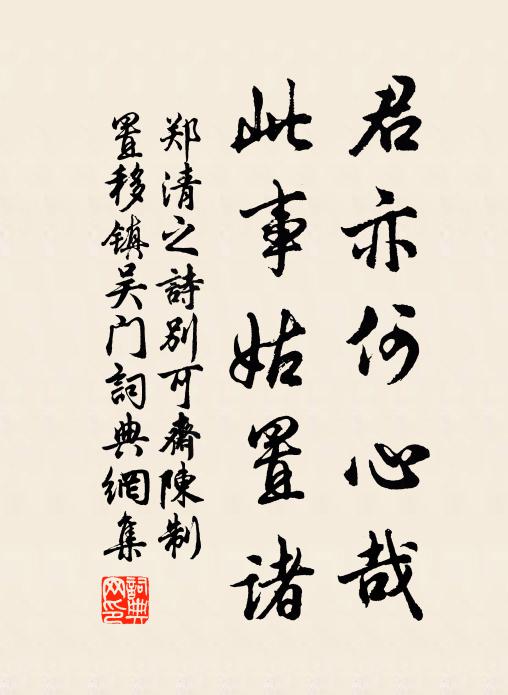 君亦何心哉
此事姑置诸
郑清之詩别可齋陳制
置移镇吴门詞典網集
詞典
网印